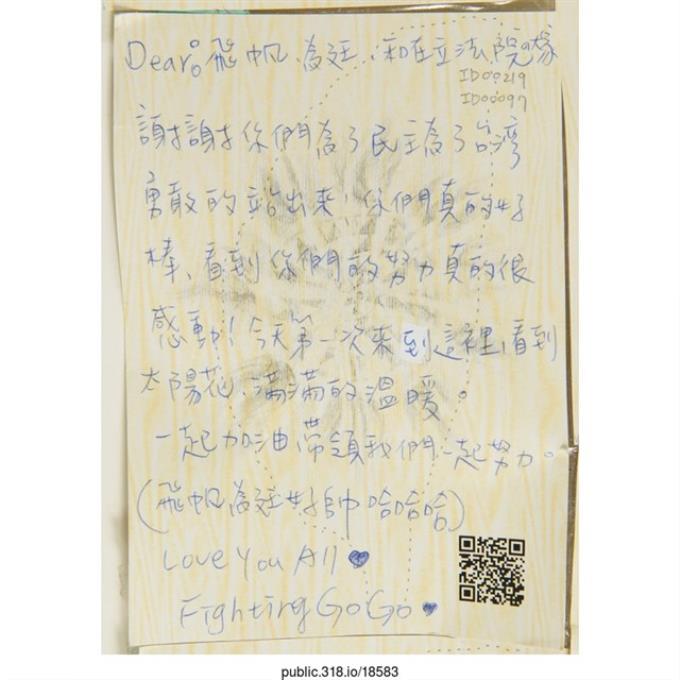 Dear。飛帆、為廷、和在立法院的大家
ID00219
ID00097
謝謝你們為了民主為了台灣
勇敢的站出來,你們真的好
棒、看到你們的努力真的很
感動!今天第一次來到這裡,看到
太陽花、滿滿的溫暖。
一起加油帶領我們一起努力。
(飛帆為廷好帥哈哈哈)
Love You All ♥
Fighting GoGo ♥
public.318.io/18583